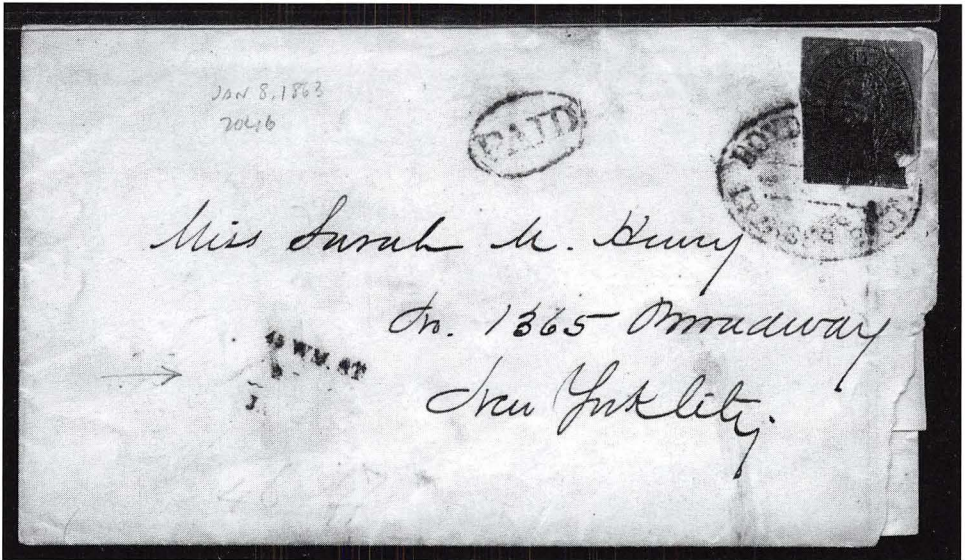 JAN 8, 1863
20L16
PAID
BOYD
Miss Sarah M. Henry
No. 1365 Broadway
WM. ST
New York City.